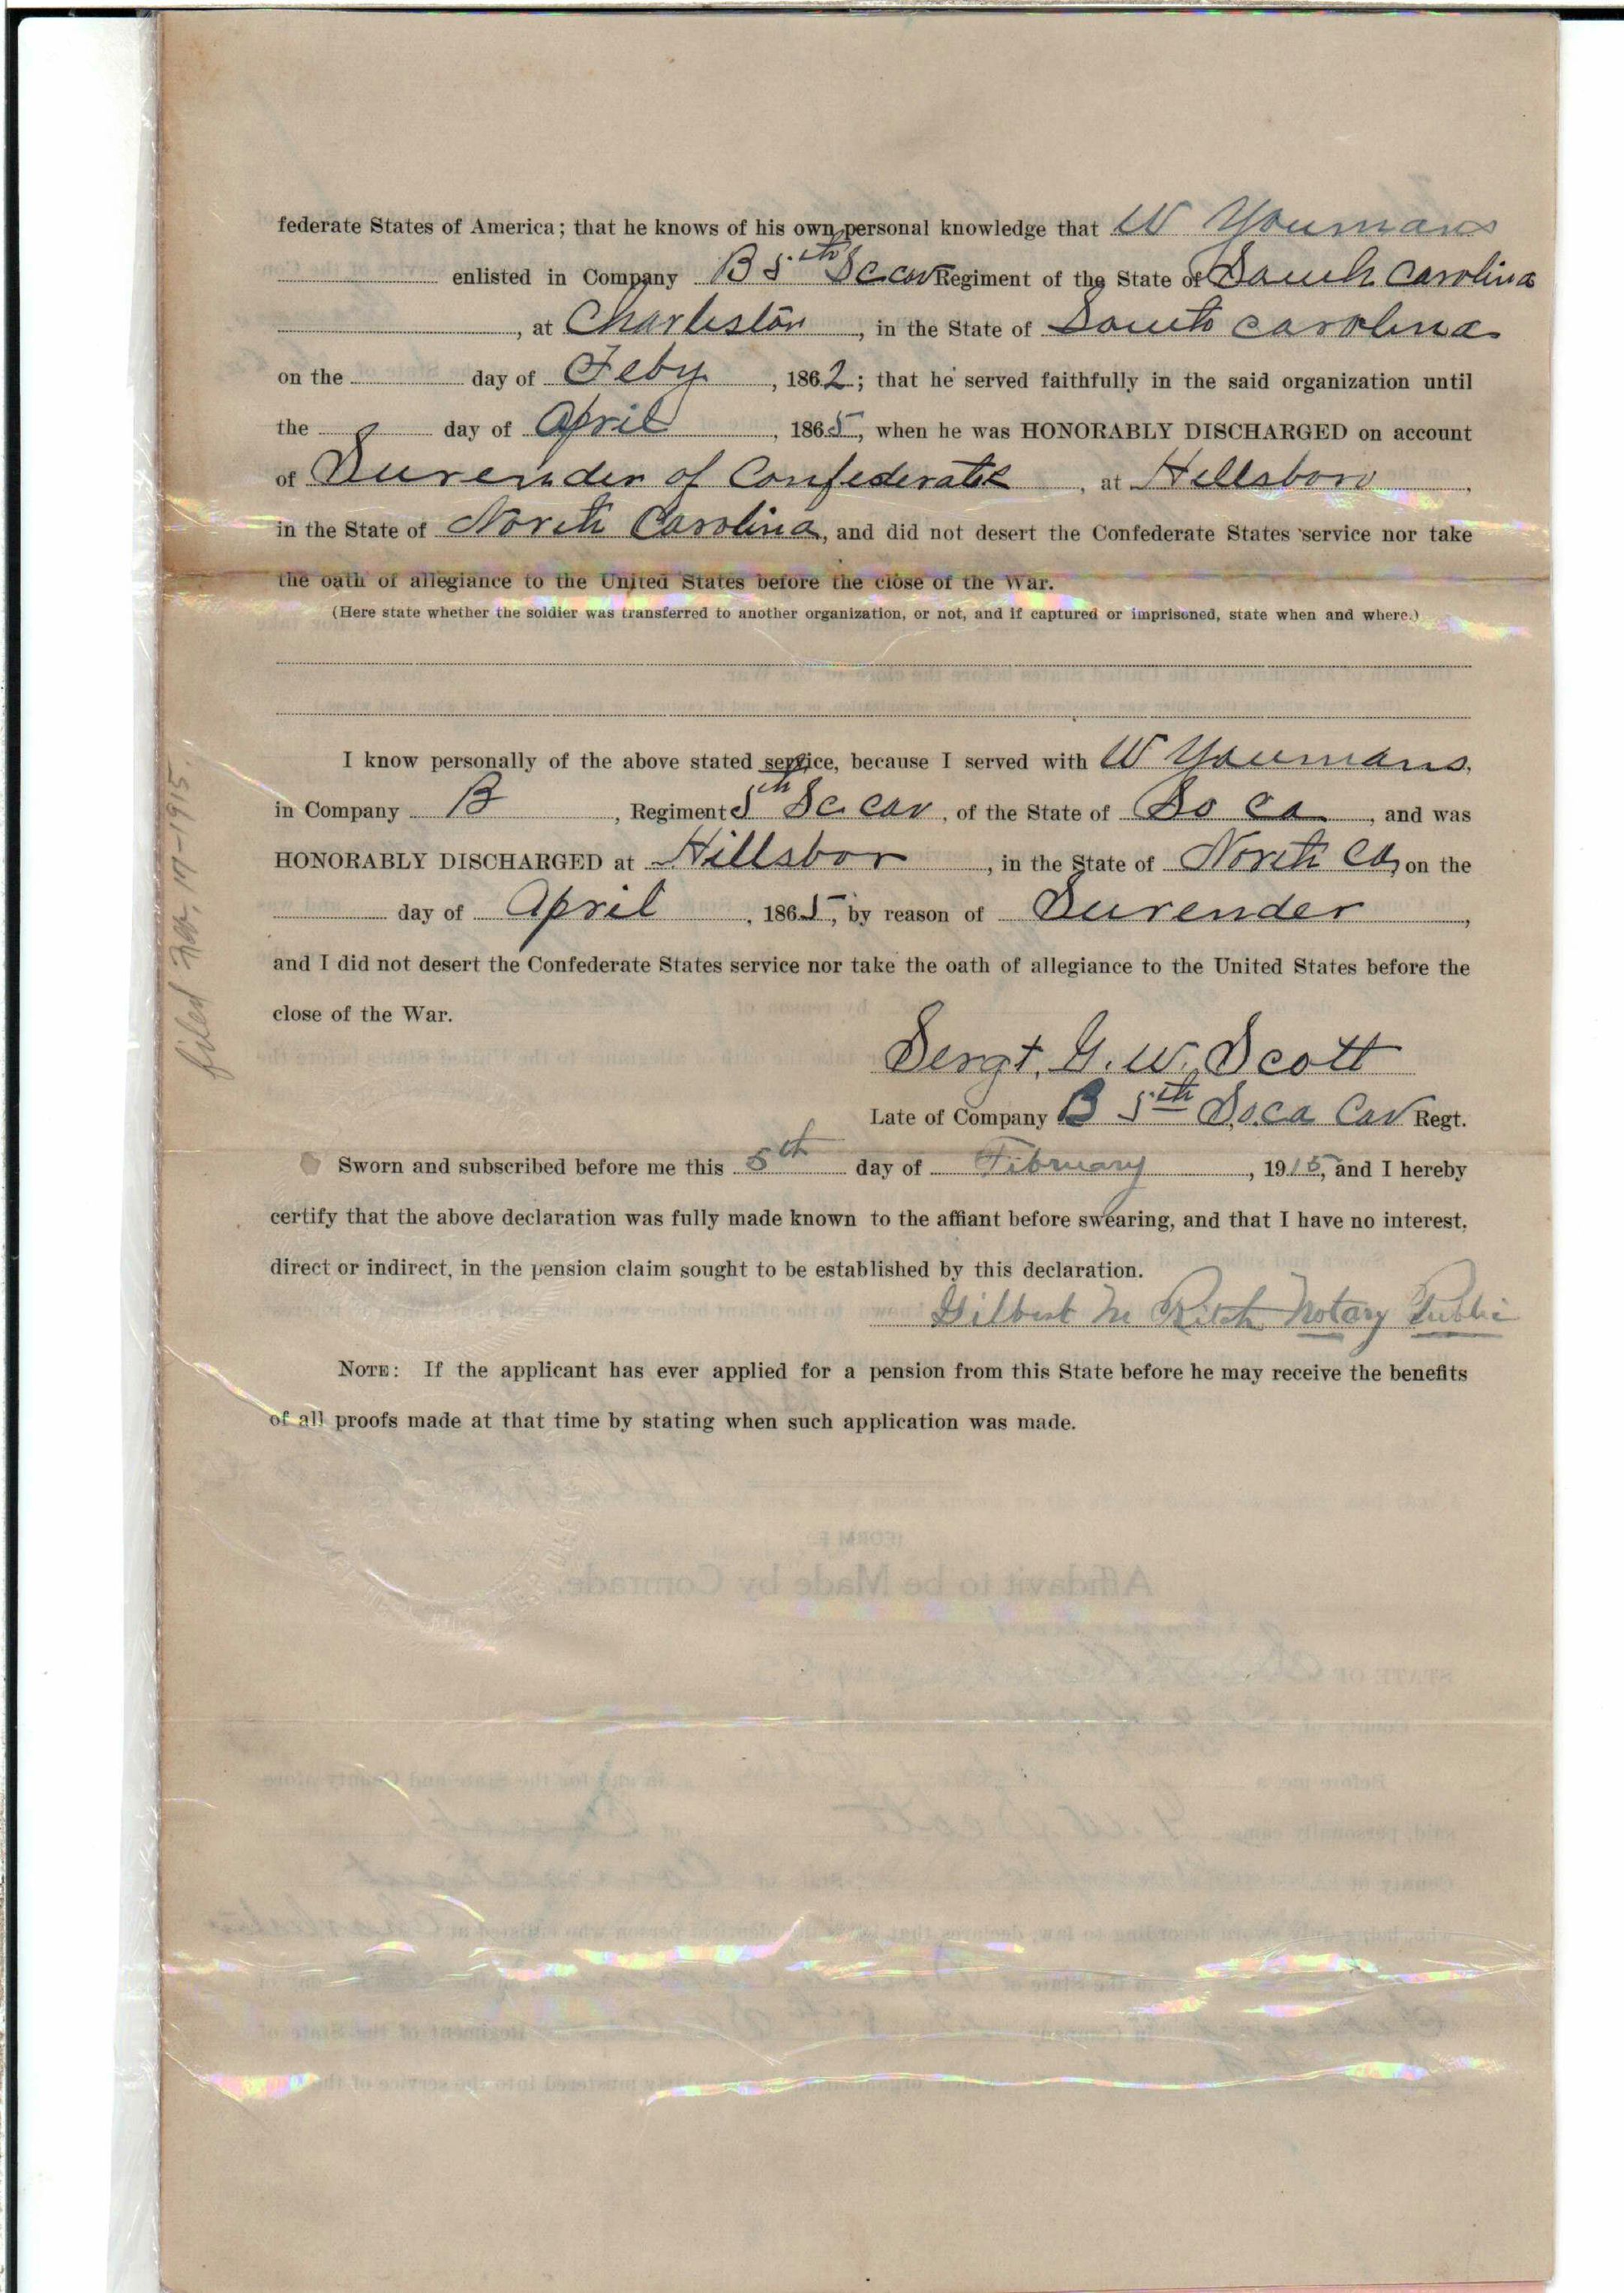 federate States of America; that he knows of his own personal knowledge that W Youmans
enlisted in Company B 5th Sc cav Regiment of the State of South Carolina
, at Charleston, in the State of South carolina
on the day of Feby, 1862; that he served faithfully in the said organization until
the day of April, 1865, when he was HONORABLY DISCHARGED on account
of Surender of Confederate, at Hillsboro,
in the State of North Carolina, and did not desert the Confederate States service nor take
the oath of allegiance to the United States before the close of the War.
(Here state whether the soldier was transferred to another organization, or not, and if captured or imprisoned, state when and where.)
I know personally of the above stated service, because I served with W Youmans,
in Company B, Regiment 5th Sc. cav, of the State of So Ca, and was
HONORABLY DISCHARGED at Hillsbor, in the State of North Ca, on the
day of April, 1865, by reason of Surender,
and I did not desert the Confederate States service nor take the oath of allegiance to the United States before the
close of the War.
Sergt. G. W. Scott
Late of Company B 5th So.ca Cav Regt.
Sworn and subscribed before me this 5th day of February, 1915, and I hereby
certify that the above declaration was fully made known to the affiant before swearing, and that I have no interest,
direct or indirect, in the pension claim sought to be established by this declaration.
Gilbert M Ritch Notary Public
NOTE: If the applicant has ever applied for a pension from this State before he may receive the benefits
of all proofs made at that time by stating when such application was made.
filed 17-1915.